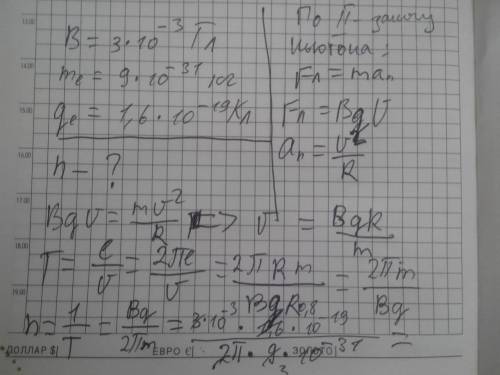 B = 3·10⁻³ Тл
mₑ = 9·10⁻³¹ кг
qₑ = 1,6·10⁻¹⁹ Кл
n – ?
По II – закону
Ньютона:
Fл = maₙ
Fл = BqV
aₙ = V²/R
BqV = mV²/R <=> V = BqR/m
T = l/V = 2πl/V = 2πRm/BqR = 2πm/Bq
n = 1/T = Bq/2πm = 3·10⁻³ · 1,6·10⁻¹⁹ / 2π · 9·10⁻³¹ =
0,8
3
13.00
14.00
15.00
16.00
17.00
18.00
19.00
ДОЛЛАР $| ЕВРО €| ЗОЛОТО|